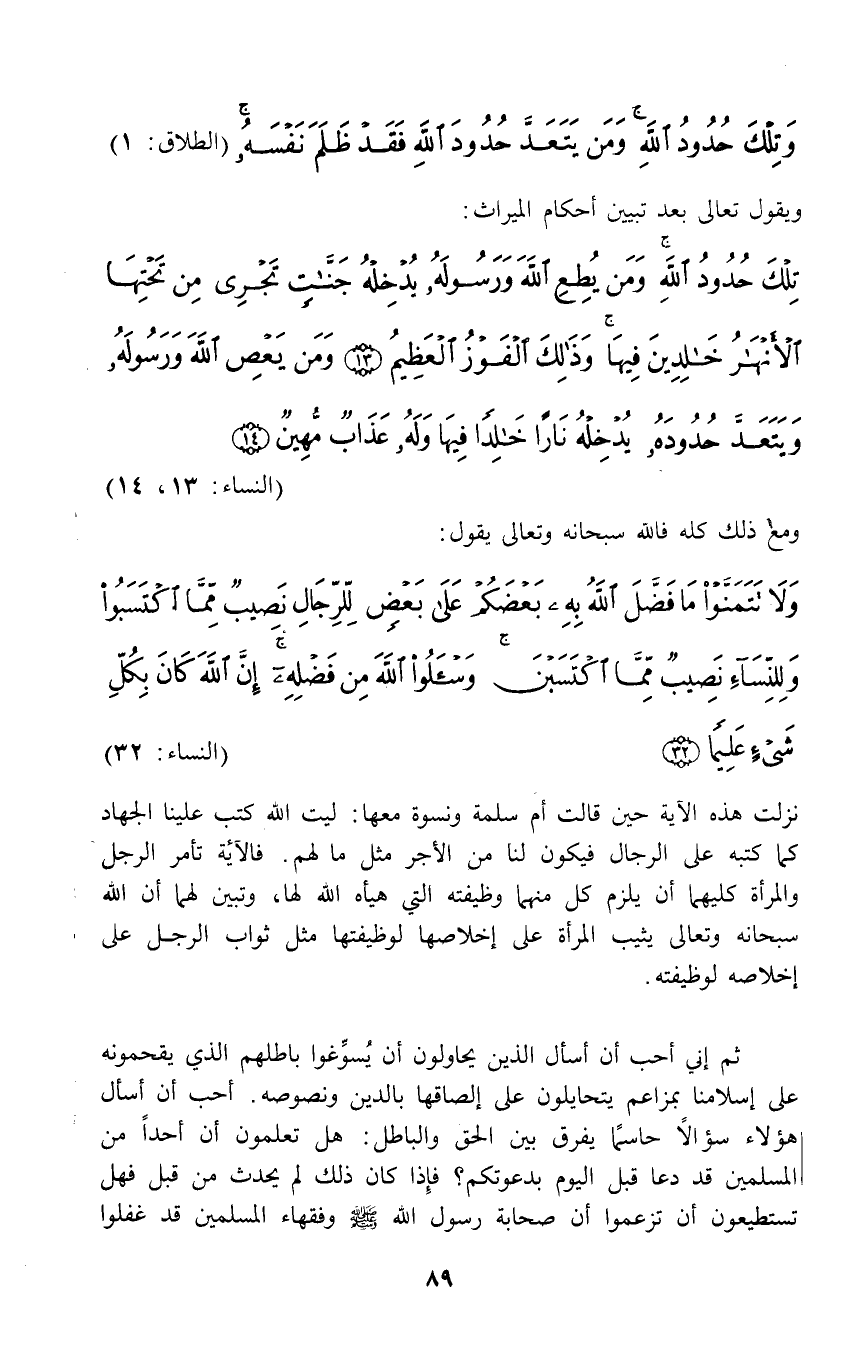 وَتِلْكَ حُدُودُ ٱللَّهِ ۚ وَمَن يَتَعَدَّ حُدُودَ ٱللَّهِ فَقَدْ ظَلَمَ نَفْسَهُۥ ۚ (الطلاق: ١)
ويقول تعالى بعد تبيين أحكام الميراث:
تِلْكَ حُدُودُ ٱللَّهِ ۚ وَمَن يُطِعِ ٱللَّهَ وَرَسُولَهُۥ يُدْخِلْهُ جَنَّٰتٍ تَجْرِى مِن تَحْتِهَا
ٱلْأَنْهَٰرُ خَٰلِدِينَ فِيهَا ۚ وَذَٰلِكَ ٱلْفَوْزُ ٱلْعَظِيمُ ﴿١٣﴾ وَمَن يَعْصِ ٱللَّهَ وَرَسُولَهُۥ
وَيَتَعَدَّ حُدُودَهُۥ يُدْخِلْهُ نَارًا خَٰلِدًا فِيهَا وَلَهُۥ عَذَابٌ مُّهِينٌ ﴿١٤﴾
(النساء: ١٣، ١٤)
ومع ذلك كله فالله سبحانه وتعالى يقول:
وَلَا تَتَمَنَّوْا۟ مَا فَضَّلَ ٱللَّهُ بِهِۦ بَعْضَكُمْ عَلَىٰ بَعْضٍ لِّلرِّجَالِ نَصِيبٌ مِّمَّا ٱكْتَسَبُوا۟
وَلِلنِّسَآءِ نَصِيبٌ مِّمَّا ٱكْتَسَبْنَ ۚ وَسْـَٔلُوا۟ ٱللَّهَ مِن فَضْلِهِۦٓ ۚ إِنَّ ٱللَّهَ كَانَ بِكُلِّ
شَىْءٍ عَلِيمًا ﴿٣٢﴾ (النساء: ٣٢)
نزلت هذه الآية حين قالت أم سلمة ونسوة معها: ليت الله كتب علينا الجهاد
كما كتبه على الرجال فيكون لنا من الأجر مثل ما لهم. فالآية تأمر الرجل
والمرأة كليهما أن يلزم كل منهما وظيفته التي هيأه الله لها، وتبين لهما أن الله
سبحانه وتعالى يثيب المرأة على إخلاصها لوظيفتها مثل ثواب الرجل على
إخلاصه لوظيفته.
ثم إني أحب أن أسأل الذين يحاولون أن يُسوِّغوا باطلهم الذي يقحمونه
على إسلامنا بمزاعم يتحايلون على إلصاقها بالدين ونصوصه. أحب أن أسأل
هؤلاء سؤالاً حاسمًا يفرق بين الحق والباطل: هل تعلمون أن أحداً من
المسلمين قد دعا قبل اليوم بدعوتكم؟ فإذا كان ذلك لم يحدث من قبل فهل
تستطيعون أن تزعموا أن صحابة رسول الله ﷺ وفقهاء المسلمين قد غفلوا
٨٩